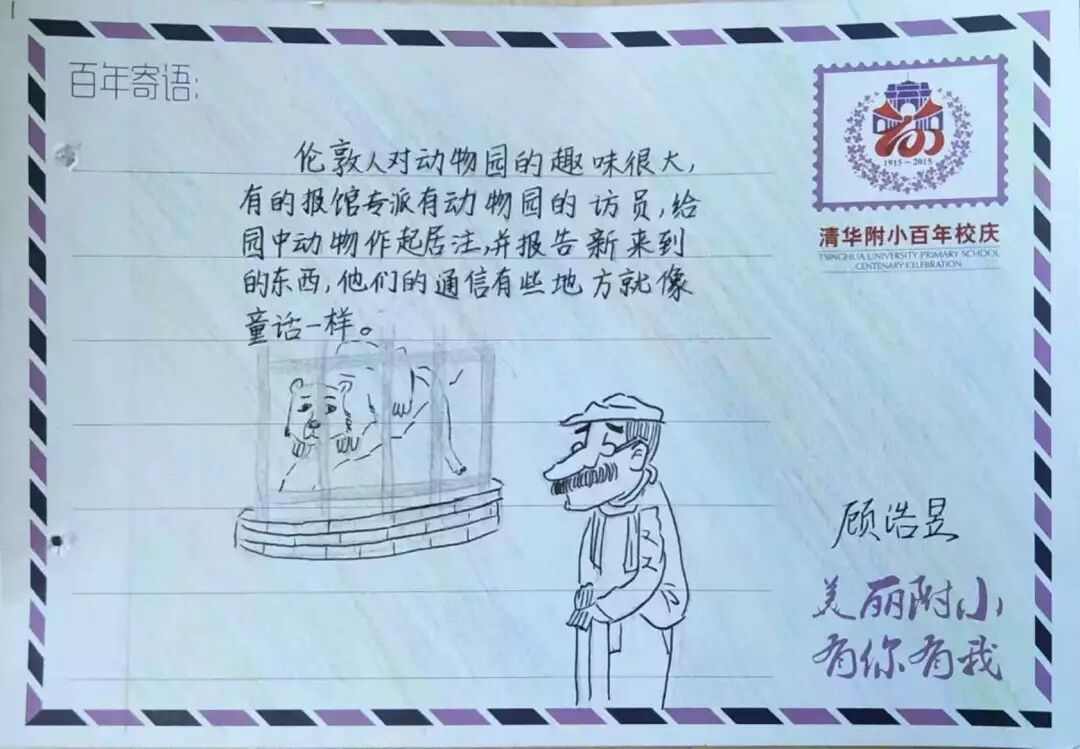 百年寄语:
伦敦人对动物园的趣味很大,
有的报馆专派有动物园的访员,给
园中动物作起居注,并报告新来到
的东西,他们的通信有些地方就像
童话一样。
1915-2015
清华附小百年校庆
TSINGHUA UNIVERSITY PRIMARY SCHOOL
CENTENARY CELEBRATION
顾浩昱
美丽附小
有你有我